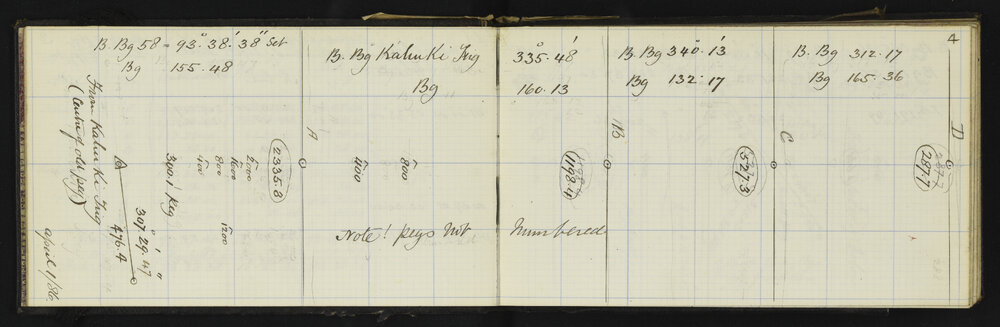 4
B. Bg 58 = 93° 38' 38" Set
Bg 155.48
B. Bg Kahu Ki Trig 335°.48'
Bg 160.13
B. Bg 340°.13'
Bg 132.17
B. Bg 312.17
Bg 165.36
From Kahu Ki Trig
(Centre of old peg)
A
B
C
D
307° 29' 47"
476.4
3901 Reg
400
800
1000
2000
1200
2335.8
400
800
1198.4
527.3
287.7
Note! pegs not numbered
April 1/86